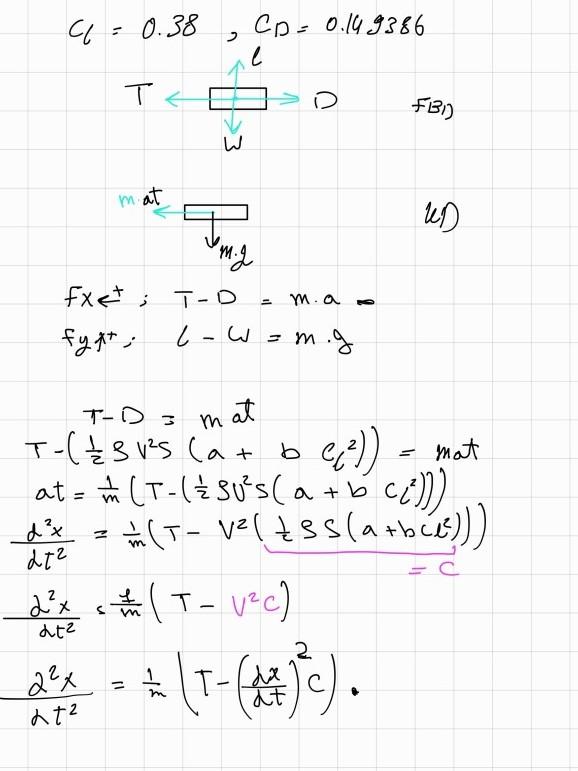 Cl = 0.38 , CD = 0.149386
l
T
D
FBD
W
m.at
KD
m.g
Fx ←+ ; T - D = m.a
Fy ↑+ ; l - W = m.g
T - D = m at
T - (½ ρ V²S (a + b Cl²)) = mat
at = 1/m (T - (½ ρ V²S (a + b Cl²)))
d²x/dt² = 1/m (T - V² (½ ρ S (a + b Cl²)))
= C
d²x/dt² = 1/m (T - V²C)
d²x/dt² = 1/m (T - (dx/dt)² C) .